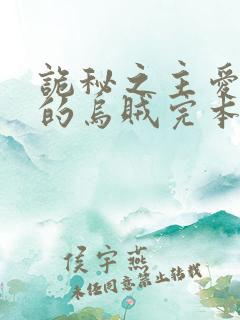 詭秘之主愛
的烏賊完本
侯宇燕
未经同意禁止转载